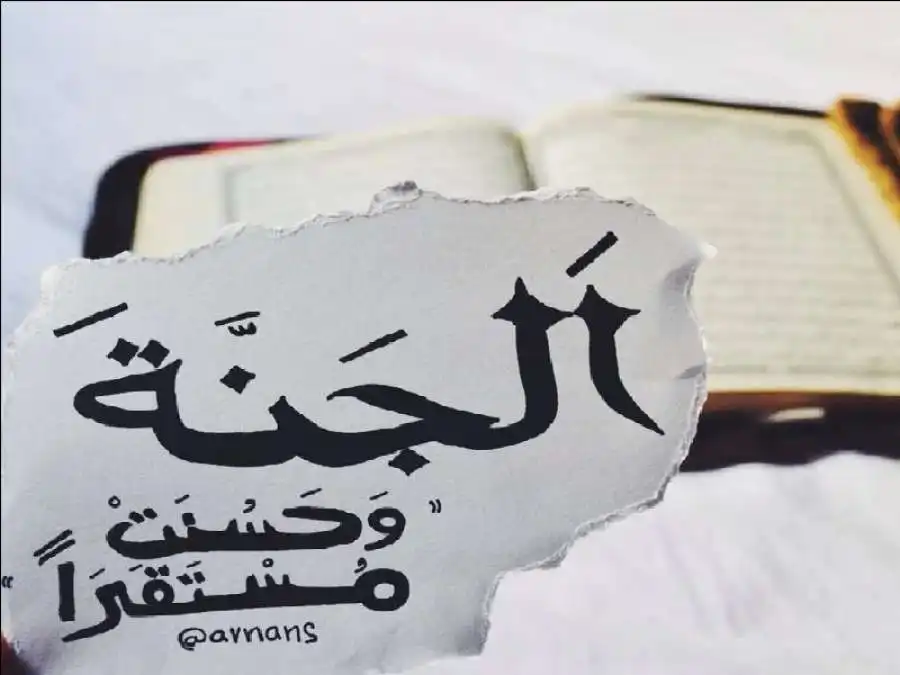 اَلجَنَّةَ
"وَحَسُنَتْ
مُسْتَقَرَاً"
@avnans